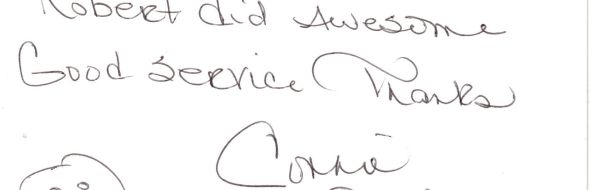 Robert did Awesome
Good Service Thanks
Connie